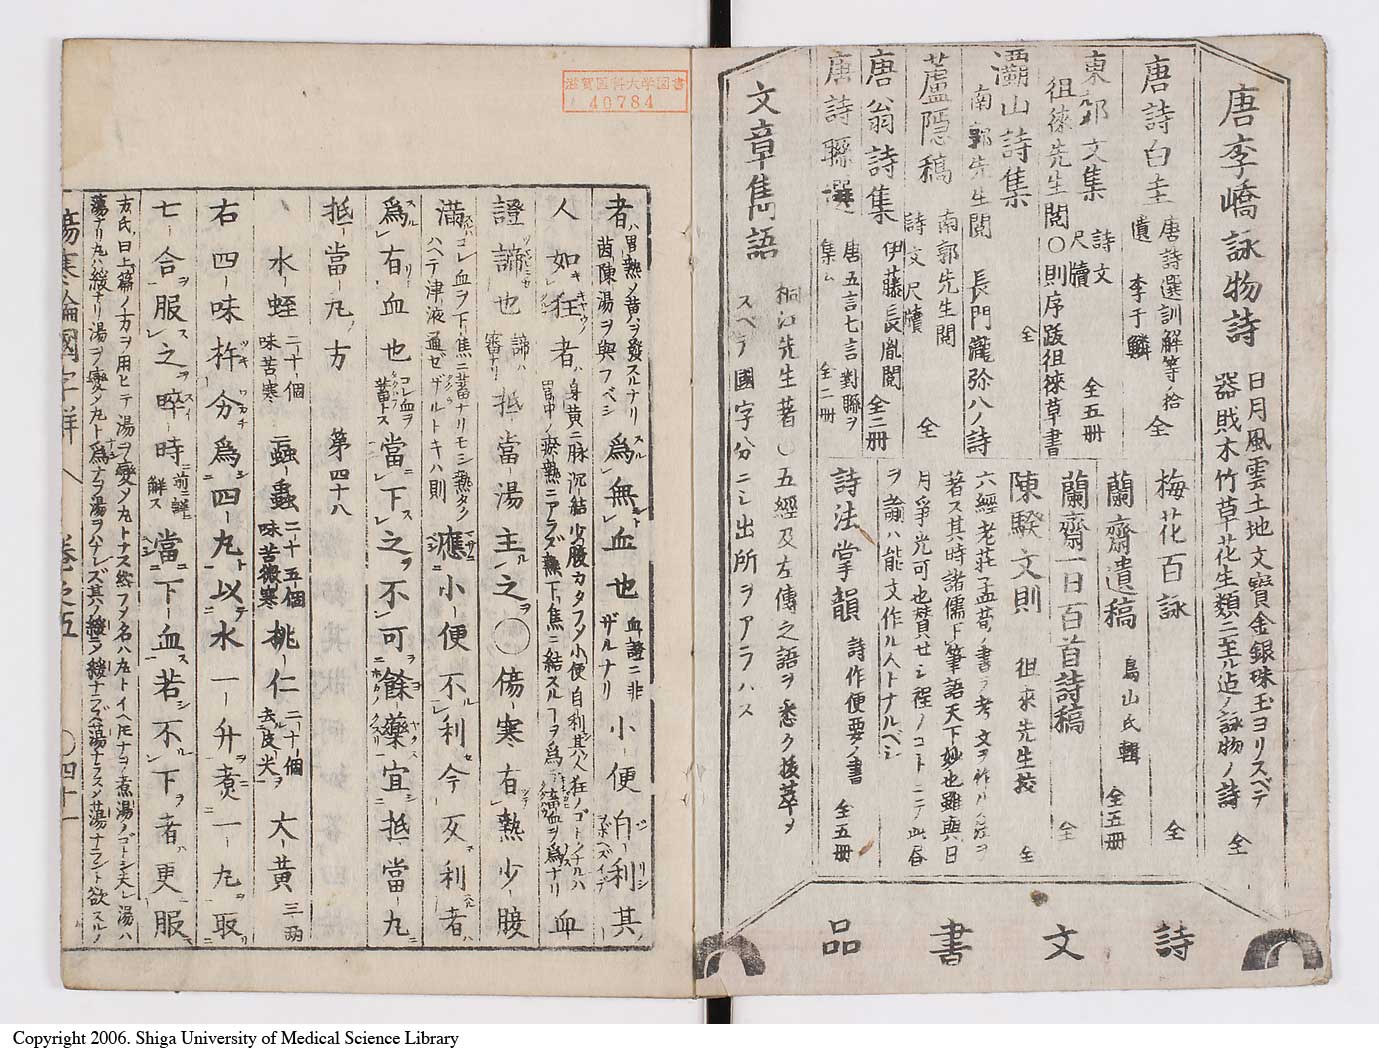 唐李嶠詠物詩 日月風雲土地文寶金銀珠玉ヨリスベテ
器財木竹草花生類ニ至ル迠ノ詠物ノ詩 全
唐詩白圭 唐詩選訓解等ノ拾
遺 李于鱗 全
梅花百詠 全
東郊文集 詩文
尺牘 全五冊
徂徠先生閲〇則序跋徂徠草書 全
蘭齋遺稿 鳥山氏輯 全五冊
蘭齋一日百首詩稿 全
灞山詩集
南郭先生閲 長門瀧弥八ノ詩
陳騤文則 徂來先生挍 全
蘆隠稿 南郭先生閲
詩文尺牘 全
六經老莊孟荀ノ書ヲ考文ヲ作ル
著ス其時諸儒下筆語天下妙也雖與日
唐翁詩集 伊藤長胤閲 全二冊
月爭光可也賛せシ程ノコトニテ此昏
ヲ諭ハ能文作ル人トナルベシ
唐詩聯選 唐五言七言對聯ヲ
集ム 全二冊
詩法掌韻 詩作便要ノ書 全五冊
文章雋語 桐江先生著〇五經及左傳之語ヲ悉ク抜萃ヲ
スベテ國字分ニシ出所ヲアラハス
詩文書品
滋賀医科大学図書
40784
者ハ胃熱ノ黄ハヲ發スルナリ
茵陳湯ヲ與フベシ 爲無血也 血證ニ非
ザルナリ 小便自利其
人如狂者ハ 身黄ニ脉沉結少腹カタフメ小便自利其人狂ノゴトクナルハ 血
證諦也 諦ハ
審ナリ 抵當湯主之〇傷寒有熱少腹
滿 コレ血ヲ下焦ニ蓄ナリモシ熱タク
ハヘテ津液通ゼザルトキハ則 應小便不利今反利者
爲有血也 コレ血ヲ
蓄トス 當下之不可餘藥宜抵當丸
抵當丸ノ方 第四十八
水蛭 二十個
味苦寒 䖟蟲 二十五個
味苦微寒 桃仁 二十個
去皮尖 大黄 三兩
右四味杵分爲四丸以水一升煮一丸取
七合服之晬時 前ニ
解ス 當下血若不下者更服
方氏曰上篇ノ方ヲ用ヒテ湯ヲ變メ丸トナス然フメ名ハ丸トイヘ𪜈ナヲ煮湯ノゴトシ夫レ湯ハ
蕩ナリ丸ハ緩ナリ湯ヲ變メ丸ト爲ナヲ湯ヲハナレズ其ハノ緩メ緩ナラズ蕩ナラスメ蕩ナラント欲スルノ
傷寒論國字解 卷之五 〇四十一
Copyright 2006. Shiga University of Medical Science Library